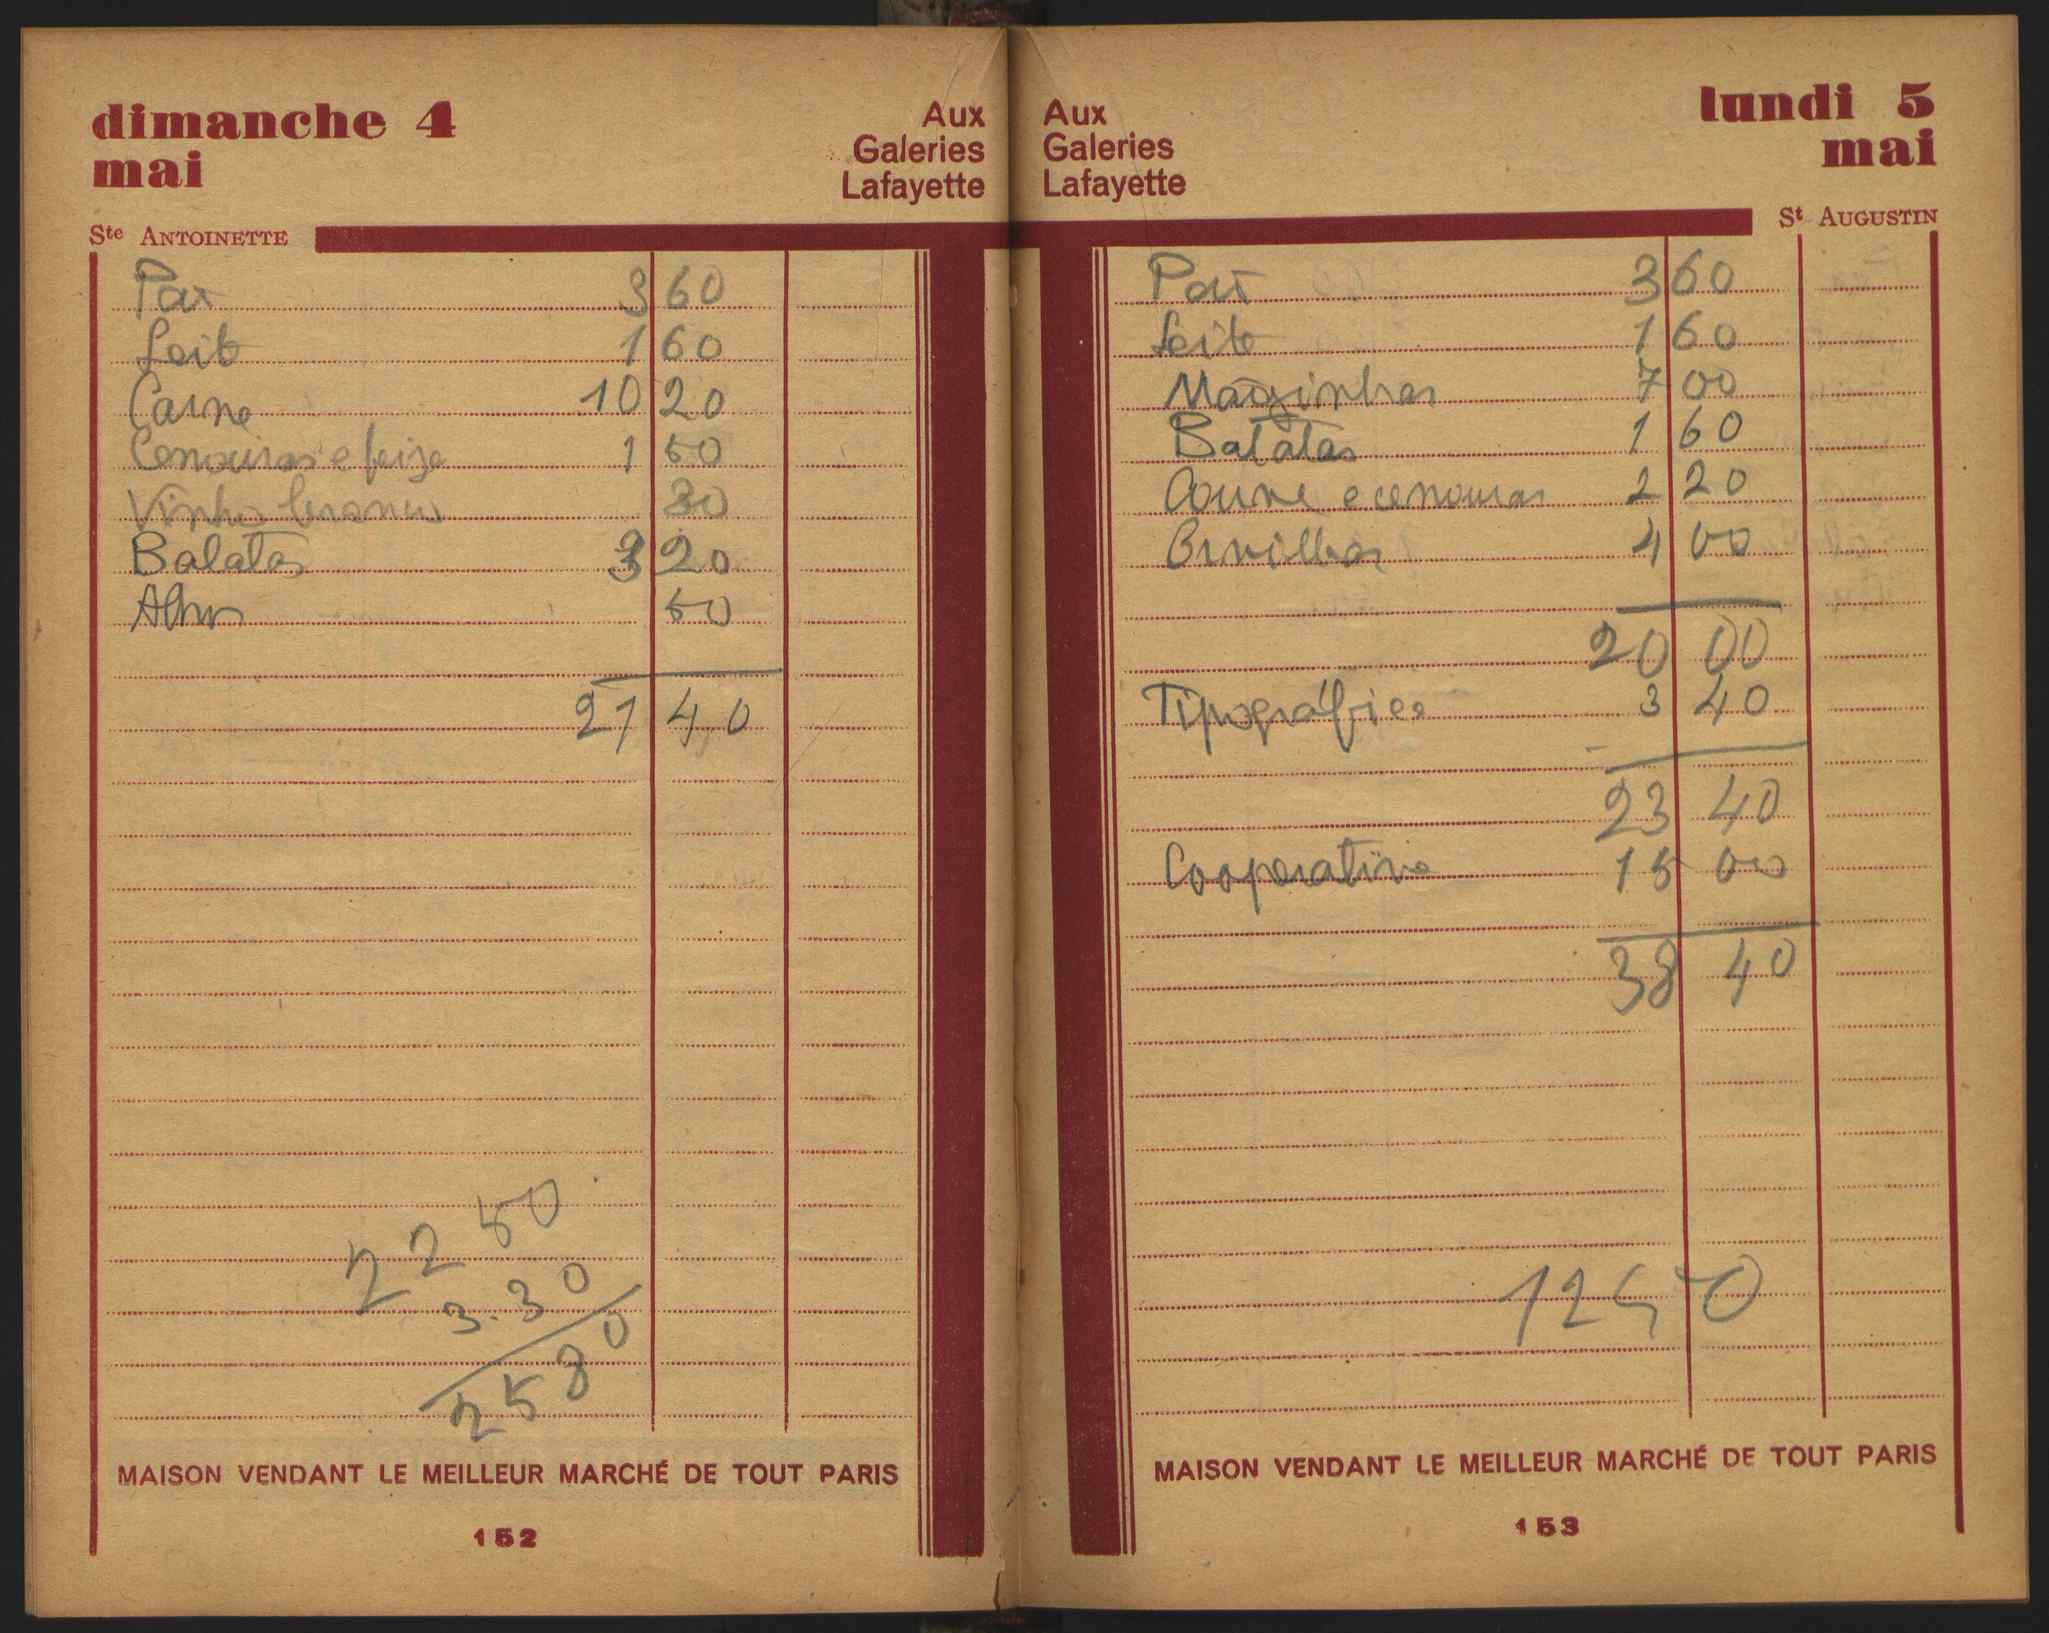 dimanche 4
mai
Aux
Galeries
Lafayette
Ste ANTOINETTE
Pão 3 60
Leite 1 60
Carne 10 20
Cenouras e feijão 1 60
Vinho branco 30
Batatas 3 20
Alhos 50
21 40
22 50
3.30
25 80
MAISON VENDANT LE MEILLEUR MARCHÉ DE TOUT PARIS
152
Aux
Galeries
Lafayette
lundi 5
mai
St AUGUSTIN
Pão 3 60
Leite 1 60
Mãozinhas 7 00
Batatas 1 60
Couve e cenouras 2 20
Ervilhas 4 00
20 00
Tipográfica 3 40
23 40
Cooperativa 15 00
38 40
MAISON VENDANT LE MEILLEUR MARCHÉ DE TOUT PARIS
153